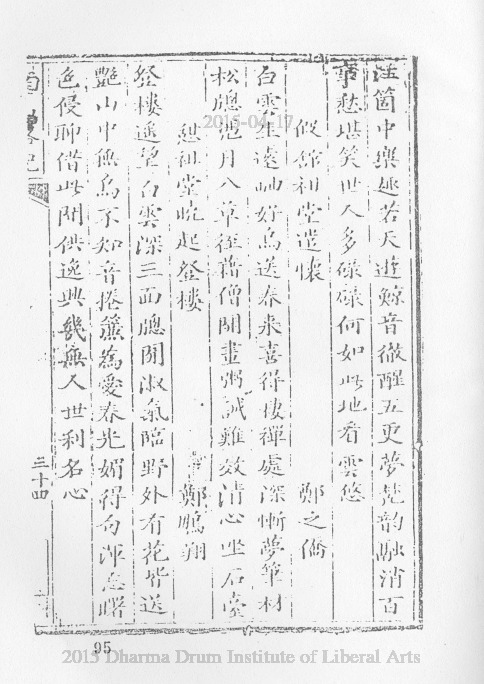 注箇中樂趣若天遊鯨音徹醒五更夢梵韵融消百
事愁堪笑世人多碌碌何如此地看雲悠
假館祖堂遣懷 鄭之僑
白雲生遠岫好鳥送春來喜得棲禪處深慚夢筆材
松牕邀月入草徑藉僧開畫粥誠難效清心坐石臺
憩祖堂曉起登樓 鄭鵬翔
登樓遥望白雲深三面牕開淑氣臨野外有花皆送
艷山中無鳥不知音捲簾為愛春光媚得句渾忘曙
色侵聊借此閒供逸興幾無人世利名心
三十四
2015-04-17
95
2015 Dharma Drum Institute of Liberal Arts